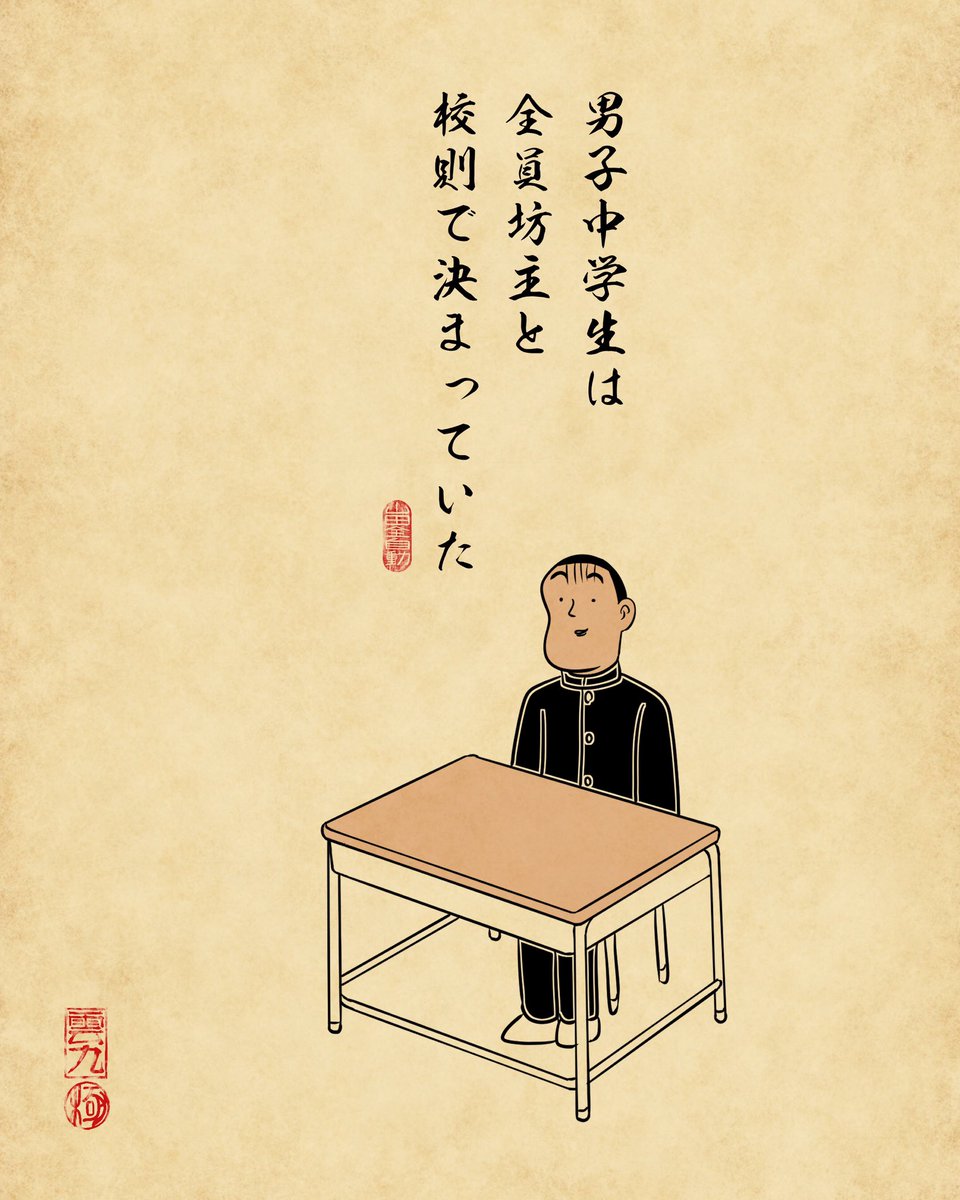 男子中学生は
全員坊主と
校則で決まっていた